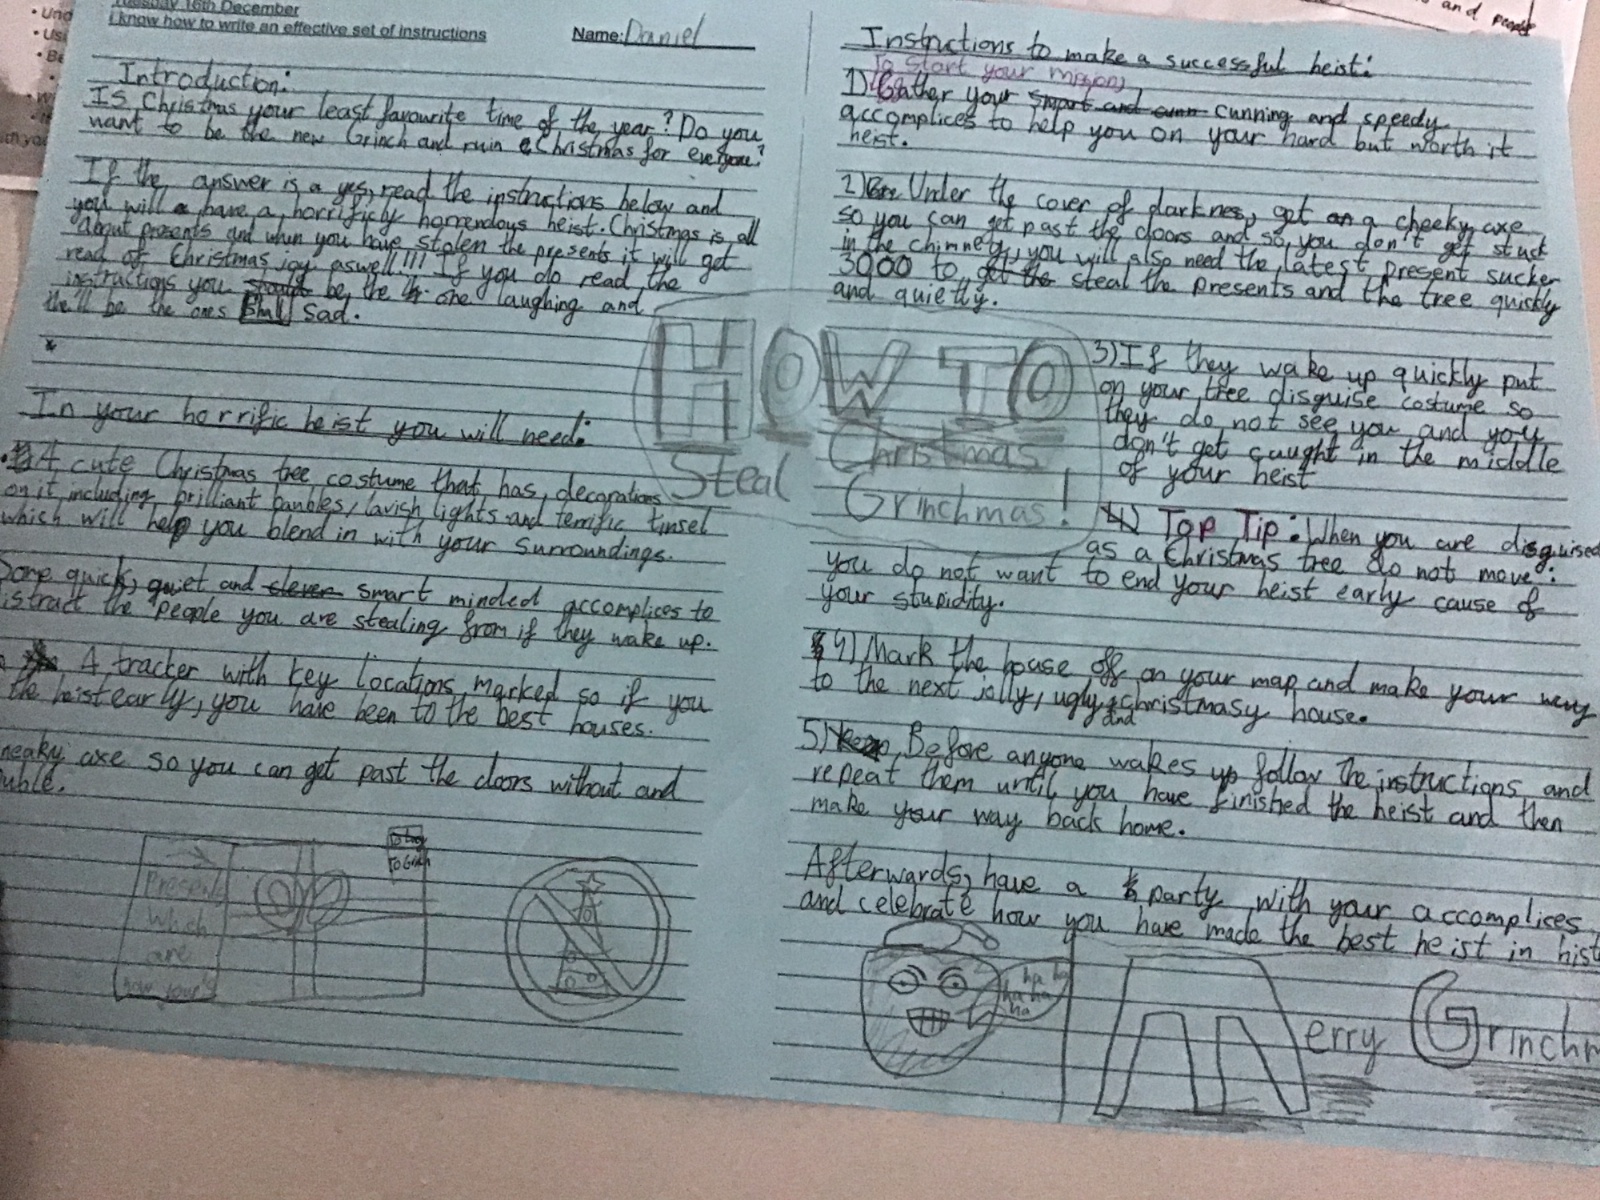 Tuesday 16th December
I know how to write an effective set of instructions
Name: Daniel
Introduction:
Is Christmas your least favourite time of the year? Do you
want to be the new Grinch and ruin Christmas for everyone?
If the answer is a yes, read the instructions below and
you will have a horrificly horrendous heist. Christmas is all
about presents and when you have stolen the presents it will get
read of Christmas joy aswell!!! If you do read the
instructions you be the one laughing and
the'll be the ones sad.
In your horrific heist you will need:
A cute Christmas tree costume that has decorations
on it including brilliant baubles, lavish lights and terrific tinsel
which will help you blend in with your surroundings.
Some quick, quiet and clever smart minded accomplices to
istract the people you are stealing from if they wake up.
A tracker with key locations marked so if you
the heist early, you have been to the best houses.
neaky axe so you can get past the doors without and
uble.
Presents
which
are
now your's
To Grinch
HOW TO
Steal Christmas
Grinchmas!
Instructions to make a successful heist:
To start your mission,
1) Gather your smart and cunn cunning and speedy
accomplices to help you on your hard but worth it
heist.
2) Under the cover of darkness, get a cheeky axe
so you can get past the doors and so you don't get stuck
in the chimney, you will also need the latest present sucker
3000 to get the steal the presents and the tree quickly
and quietly.
3) If they wake up quickly put
on your tree disguise costume so
they do not see you and you
don't get caught in the middle
of your heist
Top Tip: When you are disguised
as a Christmas tree do not move:
you do not want to end your heist early cause of
your stupidity.
4) Mark the house off on your map and make your way
to the next jolly, ugly and christmasy house.
5) Before anyone wakes up follow the instructions and
repeat them until you have finished the heist and then
make your way back home.
Afterwards, have a party with your accomplices
and celebrate how you have made the best heist in hist
ha ha
ha ha
ha
Merry Grinchm